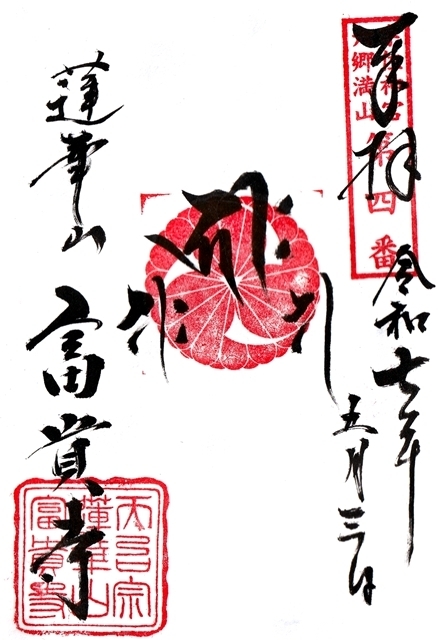 奉拝
令和七年
五月三日
六郷満山
第四番
蓮華山
富貴寺
天台宗
蓮華山
富貴寺